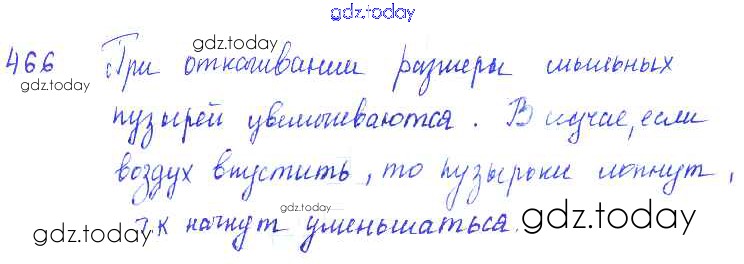 gdz.today
466 При откачивании размеры мыльных
gdz.today
gdz.today
пузырей увеличиваются. В случае, если
воздух впустить, то пузырьки лопнут,
т.к начнут уменьшаться.
gdz.today
gdz.today
gdz.today